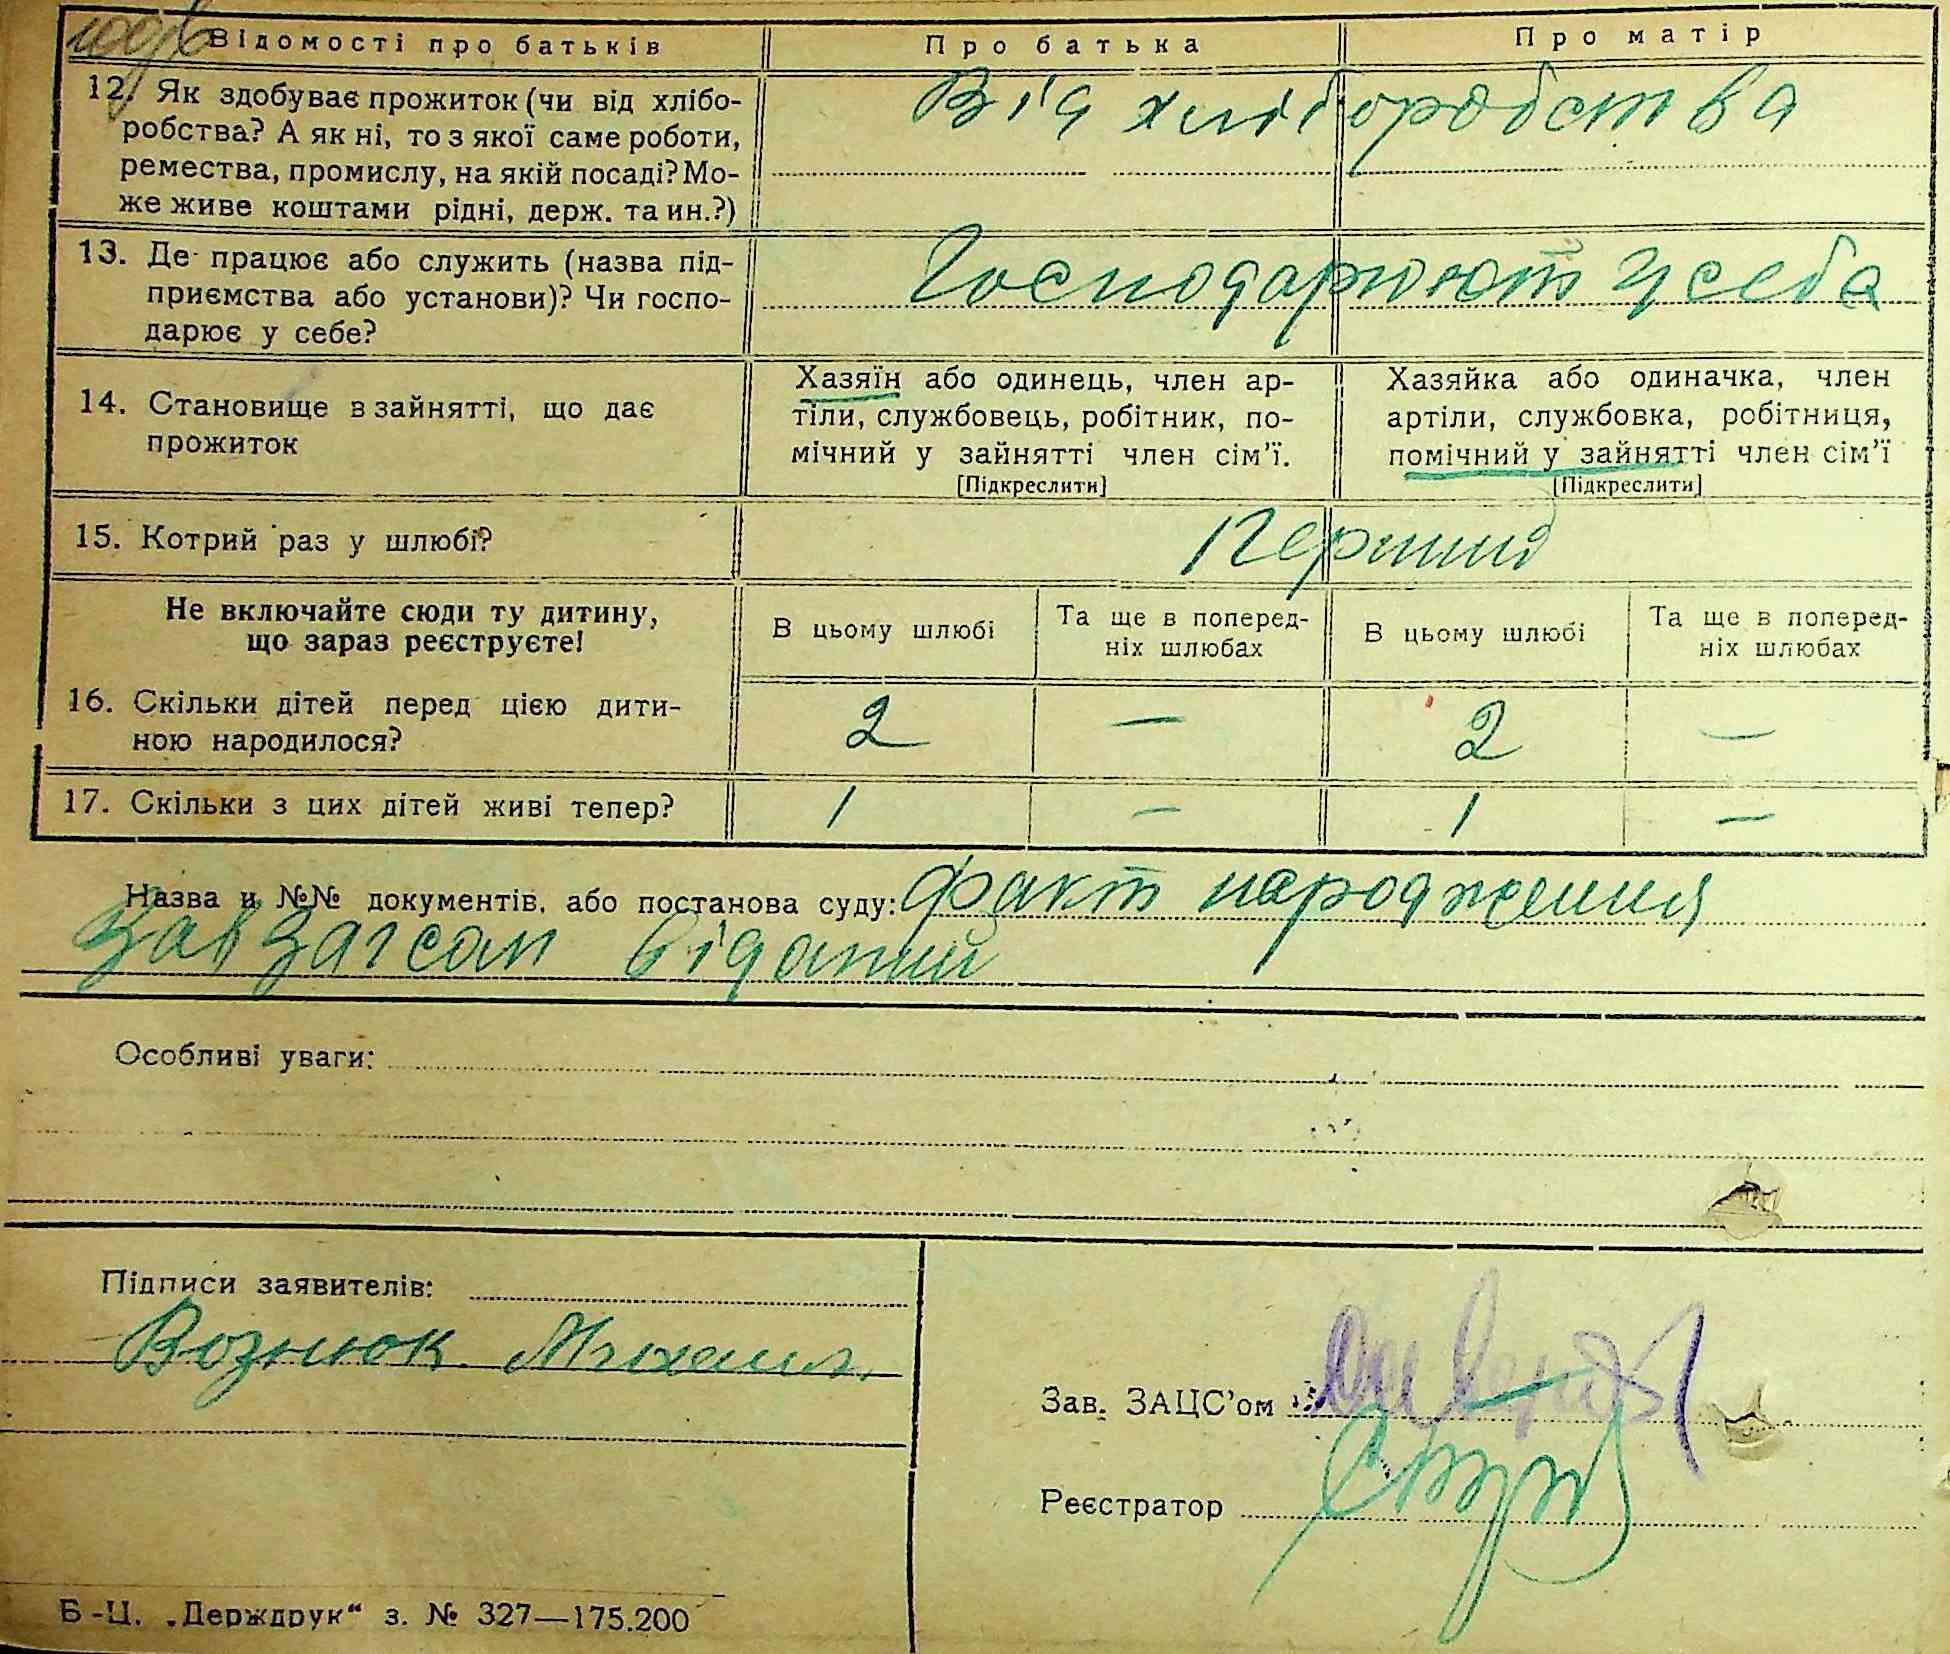 Відомості про батьків
Про батька
Про матір
12. Як здобуває прожиток (чи від хлібо-
робства? А як ні, то з якої саме роботи,
ремества, промислу, на якій посаді? Мо-
же живе коштами рідні, держ. та ин.?)
Від хліборобства
13. Де працює або служить (назва під-
приємства або установи)? Чи госпо-
дарює у себе?
Господарюют у себа
14. Становище в зайнятті, що дає
прожиток
Хазяїн або одинець, член ар-
тіли, службовець, робітник, по-
мічний у зайнятті член сім'ї.
[Підкреслити]
Хазяйка або одиначка, член
артіли, службовка, робітниця,
помічний у зайнятті член сім'ї
[Підкреслити]
15. Котрий раз у шлюбі?
Перший
Не включайте сюди ту дитину,
що зараз реєструєте!
В цьому шлюбі
Та ще в поперед-
ніх шлюбах
В цьому шлюбі
Та ще в поперед-
ніх шлюбах
16. Скільки дітей перед цією дити-
ною народилося?
2 — 2 —
17. Скільки з цих дітей живі тепер?
1 — 1 —
Назва и №№ документів, або постанова суду: факт народження
Зав Загсом відомий
Особливі уваги:
Підписи заявителів:
Вознюк Михаил
Зав. ЗАЦС'ом
Реєстратор
Б-Ц. „Держдрук“ з. № 327—175.200